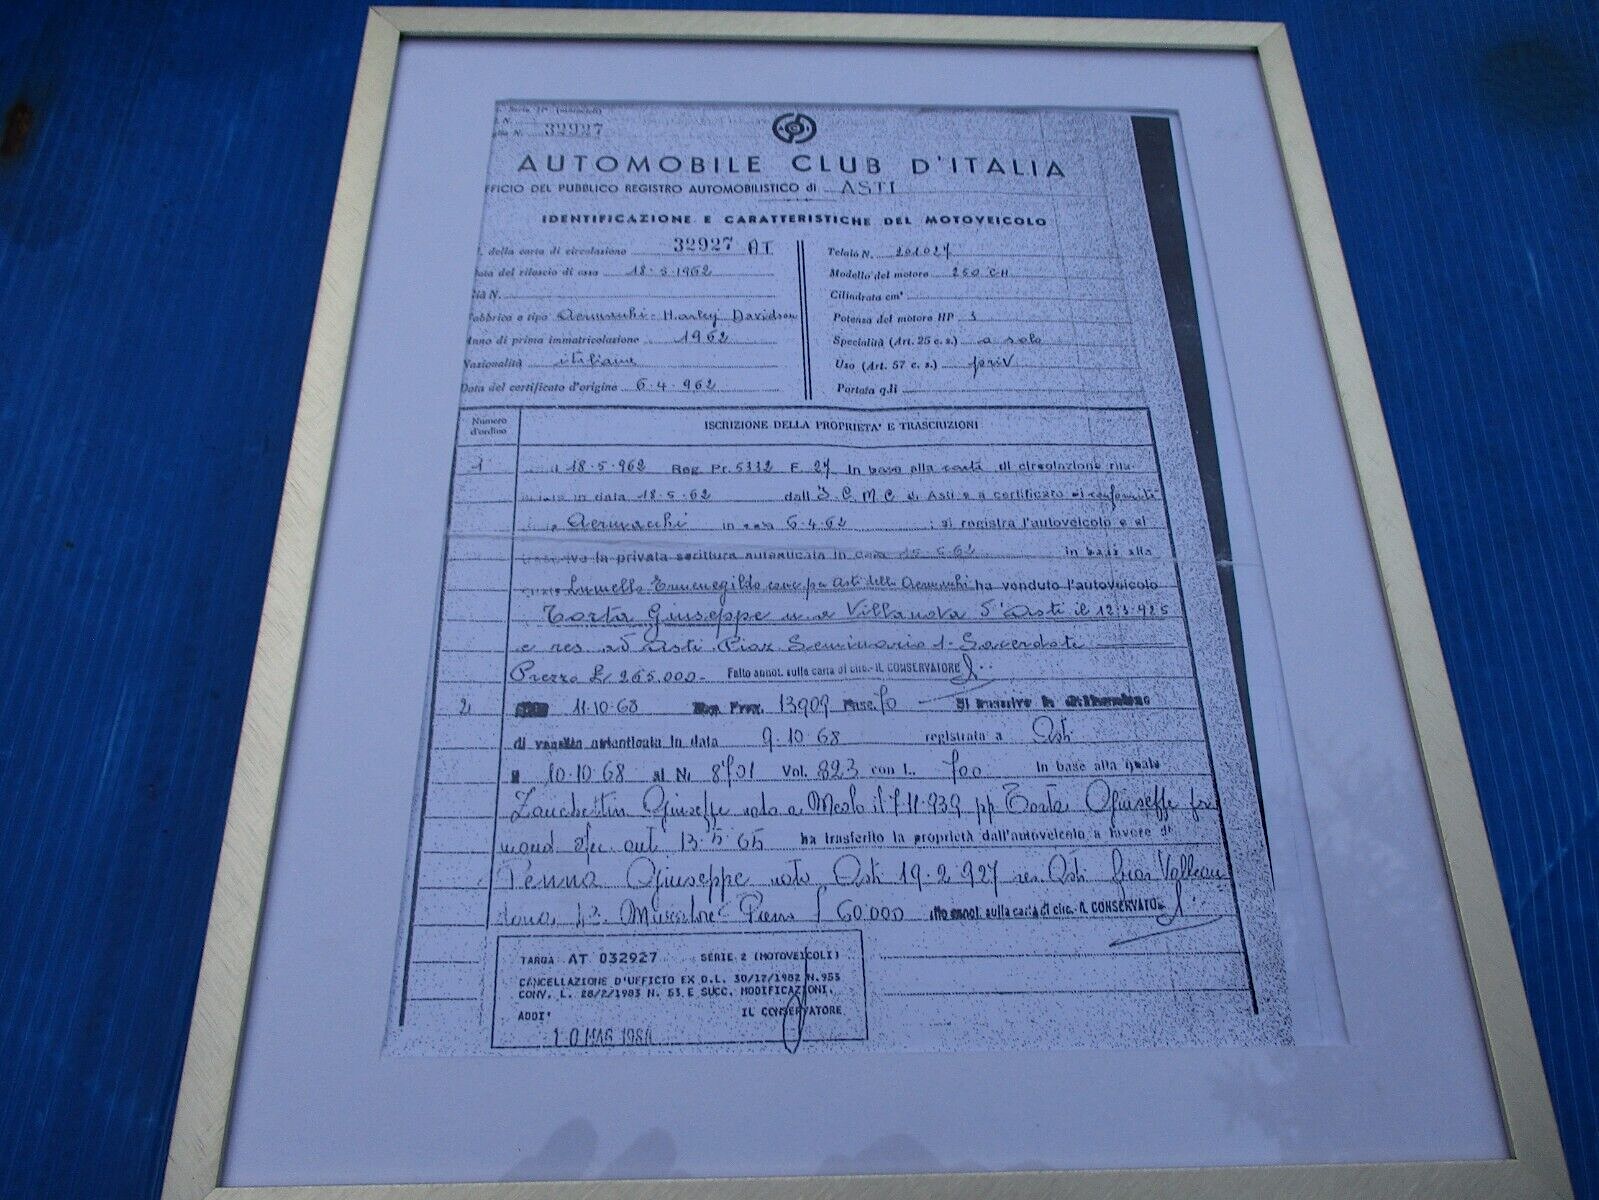 Serie 2ª (motoveicoli)
N.
N. 32927
AUTOMOBILE CLUB D'ITALIA
FFICIO DEL PUBBLICO REGISTRO AUTOMOBILISTICO di ASTI
IDENTIFICAZIONE E CARATTERISTICHE DEL MOTOVEICOLO
. della carta di circolazione 32927 AT
ata del rilascio di essa 18-5-1962
già N.
abbrica e tipo Aermacchi - Harley Davidson
nno di prima immatricolazione 1962
Nazionalità italiana
Data del certificato d'origine 6-4-962
Telaio N. 201027
Modello del motore 250 CH
Cilindrata cm³
Potenza del motore HP 3
Specialità (Art. 25 c. s.) a solo
Uso (Art. 57 c. s.) priv
Portata q.li
Numero d'ordine
ISCRIZIONE DELLA PROPRIETA' E TRASCRIZIONI
1 18-5-962 Reg. Pr. 5332 F. 27 In base alla carta di circolazione rila
in data 18-5-62 dall' I.C.M.C. di Asti e a certificato di conformità
Aermacchi in data 6-4-62 ; si registra l'autoveicolo e si
la privata scrittura autenticata in data 15-5-62 in base alla
Lumello Ermenegildo conc. per Asti della Aermacchi ha venduto l'autoveicolo
Torta Giuseppe n. a Villanova d'Asti il 12-3-925
e res. ad Asti Piaz. Seminario 1- Sacerdote
Prezzo L. 265.000- Fatto annot. sulla carta di circ.- IL CONSERVATORE
2 11-10-68 Reg. Prog. 13909 Fasc. 70 Si trascrive la dichiarazione
di vendita autenticata in data 9-10-68 registrata a Asti
il 10-10-68 al N. 8701 Vol. 323 con L. 700 In base alla quale
Zanchettin Giuseppe nato a Meolo il 7-11-939 pp Torta Giuseppe
mand. aut 13-5-65 ha trasferito la proprietà dell'autoveicolo a favore di
Penna Giuseppe nato Asti 19-2-927 res. Asti
60.000 annot. sulla carta di circ.- IL CONSERVATO
TARGA AT 032927 SERIE 2 (MOTOVEICOLI)
CANCELLAZIONE D'UFFICIO EX D.L. 30/12/1982 N.953
CONV. L. 28/2/1983 N. 53 E SUCC. MODIFICAZIONI.
ADDI' IL CONSERVATORE
10 MAG 1984